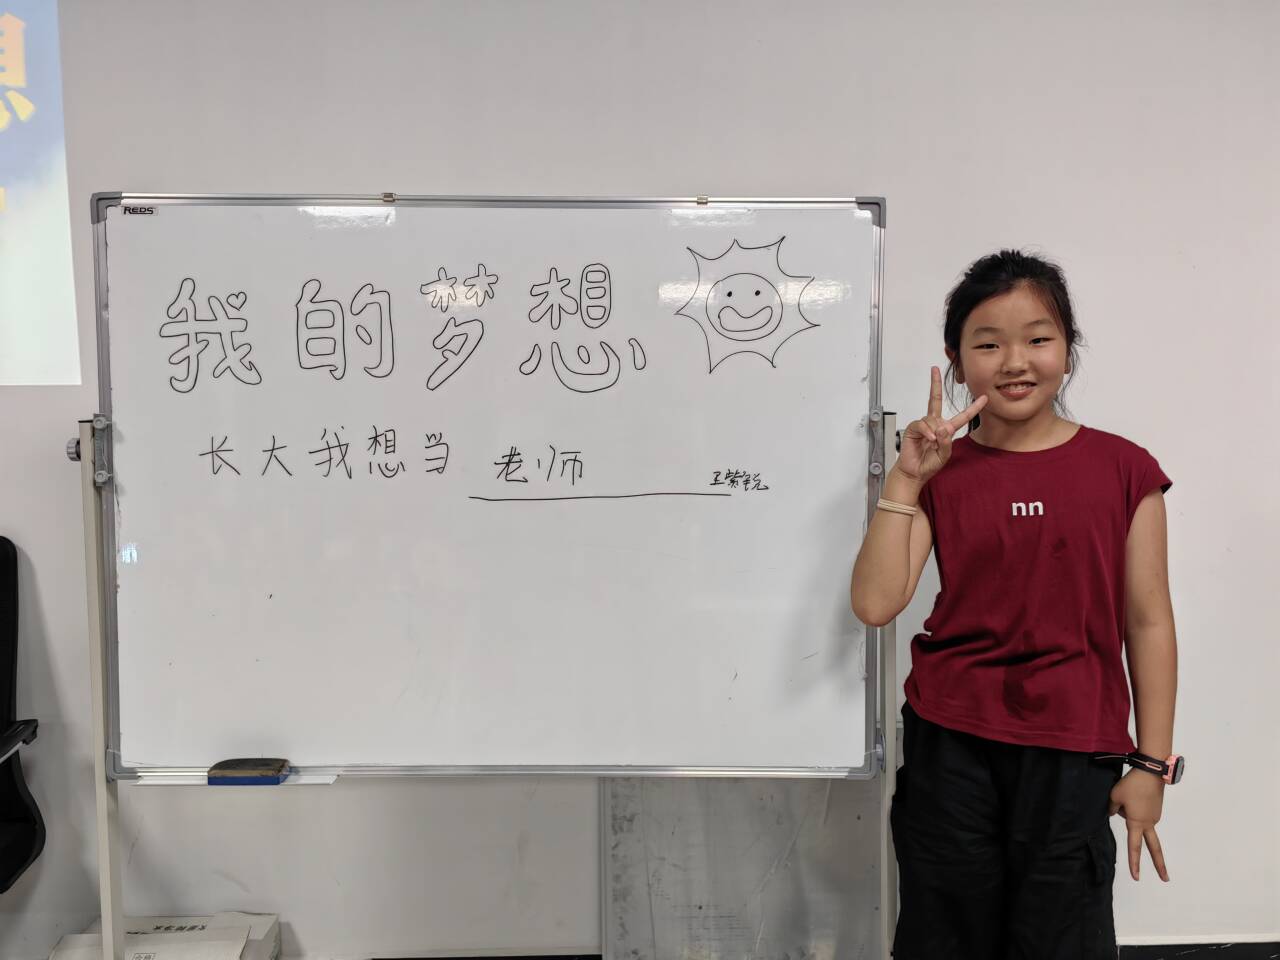 REDS
我的梦想
长大我想当 老师
王紫锐
nn